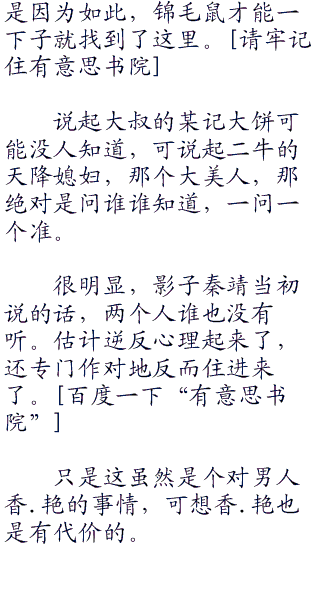 是因为如此，锦毛鼠才能一
下子就找到了这里。[请牢记
住有意思书院]
说起大叔的某记大饼可
能没人知道，可说起二牛的
天降媳妇，那个大美人，那
绝对是问谁谁知道，一问一
个准。
很明显，影子秦靖当初
说的话，两个人谁也没有
听。估计逆反心理起来了，
还专门作对地反而住进来
了。[百度一下“有意思书
院”]
只是这虽然是个对男人
香.艳的事情，可想香.艳也
是有代价的。